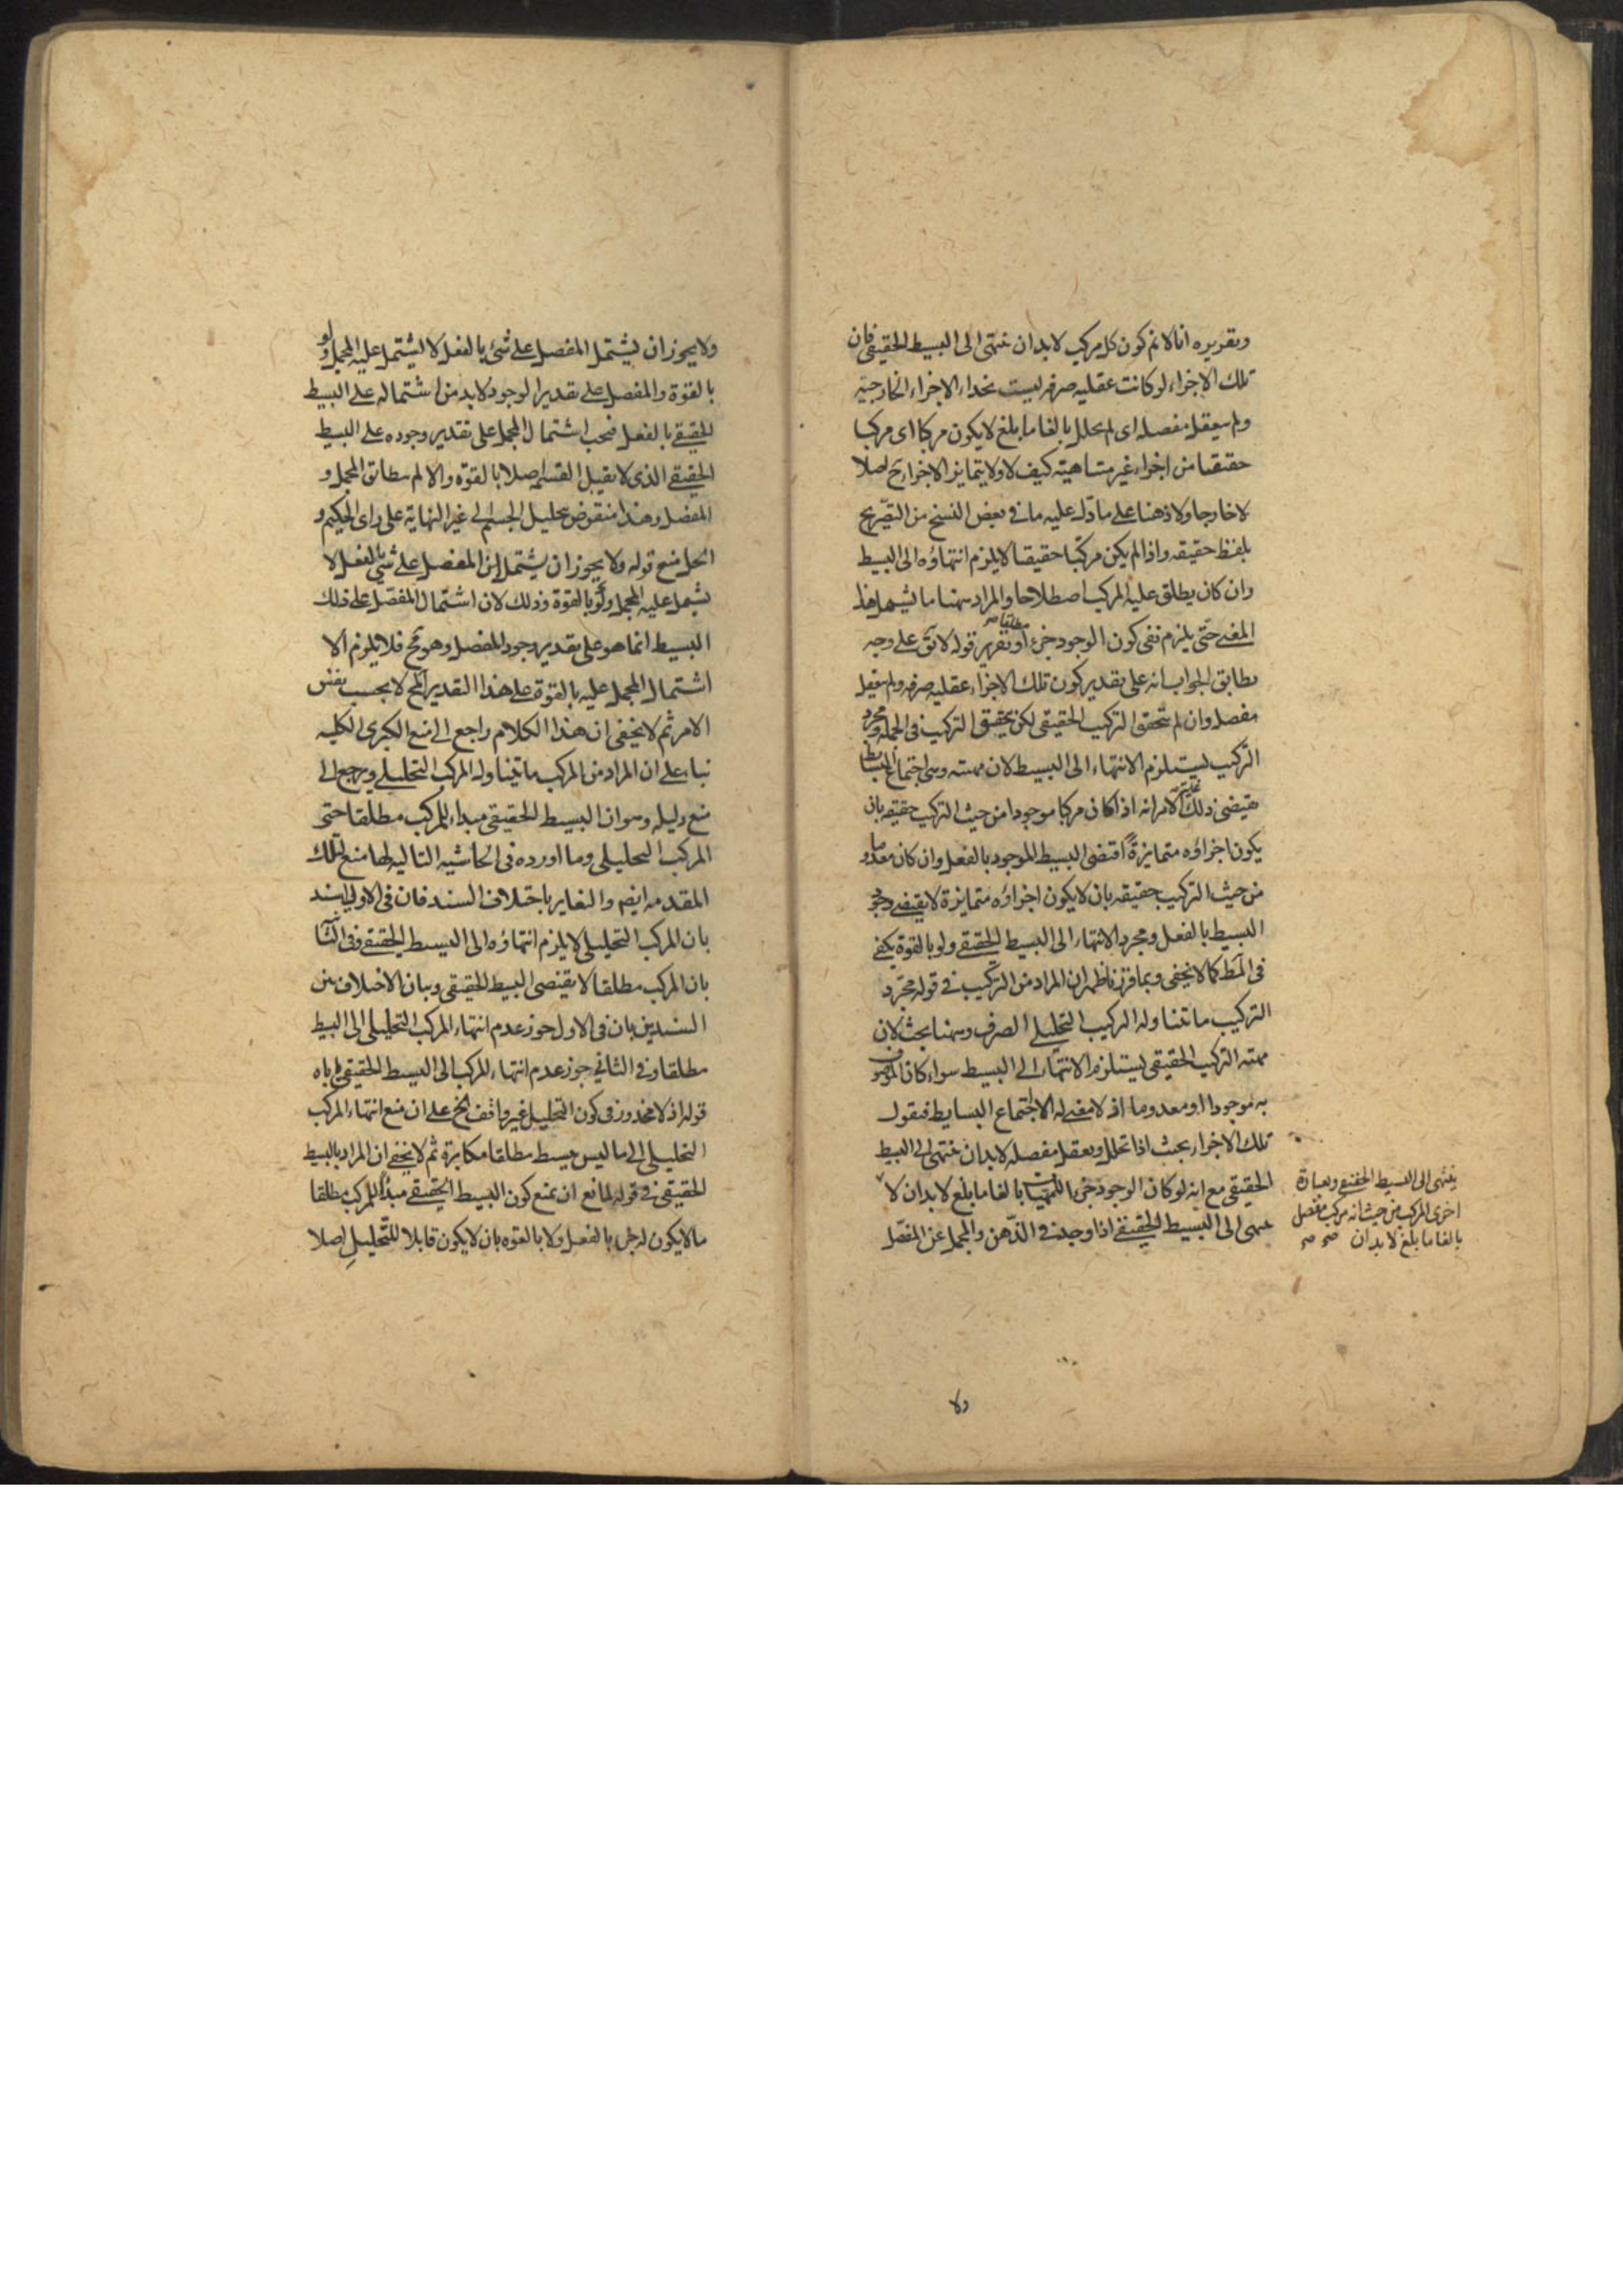 وتقريره انا لانم كون كل مركب لابد ان ينتهى الى البسيط الحقيقى فان
تلك الاجزاء لو كانت عقليه صرفه ليست بحذاء الاجزاء الخارجيه
ولم يتعقل مفصله اى لم يحلل بالغا ما بلغ لا يكون مركبا اى مركبا
حقيقيا من اجزاء غير متناهيه كيف لا ولا يتمايز الاجزاء ح اصلا
لا خارجا ولا ذهنا على ما دل عليه ما فى بعض النسخ من التصريح
بلفظ حقيقه واذا لم يكن مركبا حقيقيا لا يلزم انتهاؤه الى البسيط
وان كان يطلق عليه المركب اصطلاحا والمراد ههنا ما يشمل هذا
المعنى حتى يلزم نفى كون الوجود جزءا مطلقا صح وتقرير قوله لا تق على وجه
يطابق الجواب انه على تقدير كون تلك الاجزاء عقليه صرفه ولم يتعقل
مفصله وان لم يتحقق التركيب الحقيقى لكن يتحقق التركيب فى الجمله ومجرد
التركيب يستلزم الانتهاء الى البسيط لان مهيته وهى اجتماع البسايط
يقتضى ذلك غايته الامر انه اذا كان مركبا موجودا من حيث التركيب حقيقه بان
يكون اجزاؤه متمايزة اقتضى البسيط الموجود بالفعل وان كان معدوما
من حيث التركيب حقيقه بان لا يكون اجزاؤه متمايزة لا يقتضى وجود
البسيط بالفعل ومجرد الانتهاء الى البسيط الحقيقى ولو بالقوة يكفى
فى المط كما لا يخفى وبما قررنا ظهر ان المراد من التركيب فى قوله مجرد
التركيب ما يتناوله التركيب التحليلى الصرف وههنا بحث لان
مهيته التركيب الحقيقى يستلزم الانتهاء الى البسيط سواء كان الموصوف
به موجودا او معدوما اذ لا معنى له الا اجتماع البسايط فنقول
تلك الاجزاء بحيث اذا تحلل وتعقل مفصله لابد ان ينتهى الى البسيط
الحقيقى مع انه لو كان الوجود جزءا للمهيات بالغا ما بلغ لابد ان لا
ينتهى الى البسيط الحقيقى اذا وجلت فى الذهن والمجمل عن المفصل
ينتهى الى البسيط الحقيقى وبعبارة
اخرى المركب من حيث انه مركب مفصل
بالغا ما بلغ لابد ان صح صح
ولا
ولا يجوز ان يشتمل المفصل على شئ بالفعل لا يشتمل عليه المجمل ولو
بالقوة والمفصل على تقدير الوجود لابد من اشتماله على البسيط
الحقيقى بالفعل فيجب اشتمال المجمل على تقدير وجوده على البسيط
الحقيقى الذى لا يقبل القسمه اصلا بالقوة والا لم يطابق المجمل و
المفصل وهذا منقوض بتحليل الجسم الى غير النهاية على راى الحكيم و
الحل منع قوله ولا يجوز ان يشتمل المفصل على شئ بالفعل لا
يشمل عليه المجمل ولو بالقوة وذلك لان اشتمال المفصل على ذلك
البسيط انما هو على تقدير وجود المفصل وهو مح فلا يلزم الا
اشتمال المجمل عليه بالقوة على هذا التقدير المح لا بحسب نفس
الامر ثم لا يخفى ان هذا الكلام راجع الى منع الكبرى الكليه
بناء على ان المراد من المركب ما يتناوله المركب التحليلى ويرجع الى
منع دليله وهو ان البسيط الحقيقى مبداء للمركب مطلقا حتى
المركب التحليلى وما اورده فى الحاشيه التاليه لها منع لتلك
المقدمه ايضم والتغاير باختلاف السند فان فى الاولى اسند
بان المركب التحليلى لا يلزم انتهاؤه الى البسيط الحقيقى وفى الثانيه
بان المركب مطلقا لا يقتضى البسيط الحقيقى وبيان الاختلاف بين
السندين بان فى الاول جوز عدم انتهاء المركب التحليلى الى البسيط
مطلقا وفى الثانى جوز عدم انتهاء للمركب الى البسيط الحقيقى ياباه
قوله اذ لا محذور فى كون التحليل غير واقف الخ على ان منع انتهاء المركب
التحليلى الى ما ليس ببسيط مطلقا مكابرة ثم لا يخفى ان المراد بالبسيط
الحقيقى فى قوله لمانع ان يمنع كون البسيط الحقيقى مبدأ للمركب مطلقا
ما لا يكون له جزء بالفعل ولا بالقوه بان لا يكون قابلا للتحليل اصلا